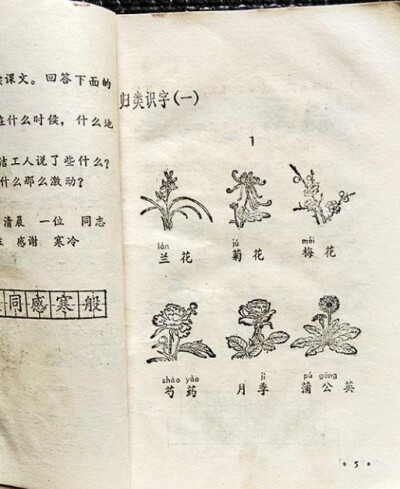 课文。回答下面的
在什么时候，什么地
洁工人说了些什么？
什么那么激动？
清晨 一位 同志
感谢 寒冷
同感寒般
归类识字（一）
1
lán jú méi
兰花 菊花 梅花
sháo yào jì pú gōng
芍药 月季 蒲公英
5